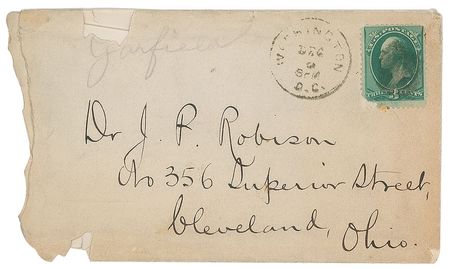 Garfield
WASHINGTON
DEC
9
8PM
D.C.
U.S. POSTAGE
THREE CENTS
3
Dr J. P. Robison
No 356 Superior Street,
Cleveland, Ohio.